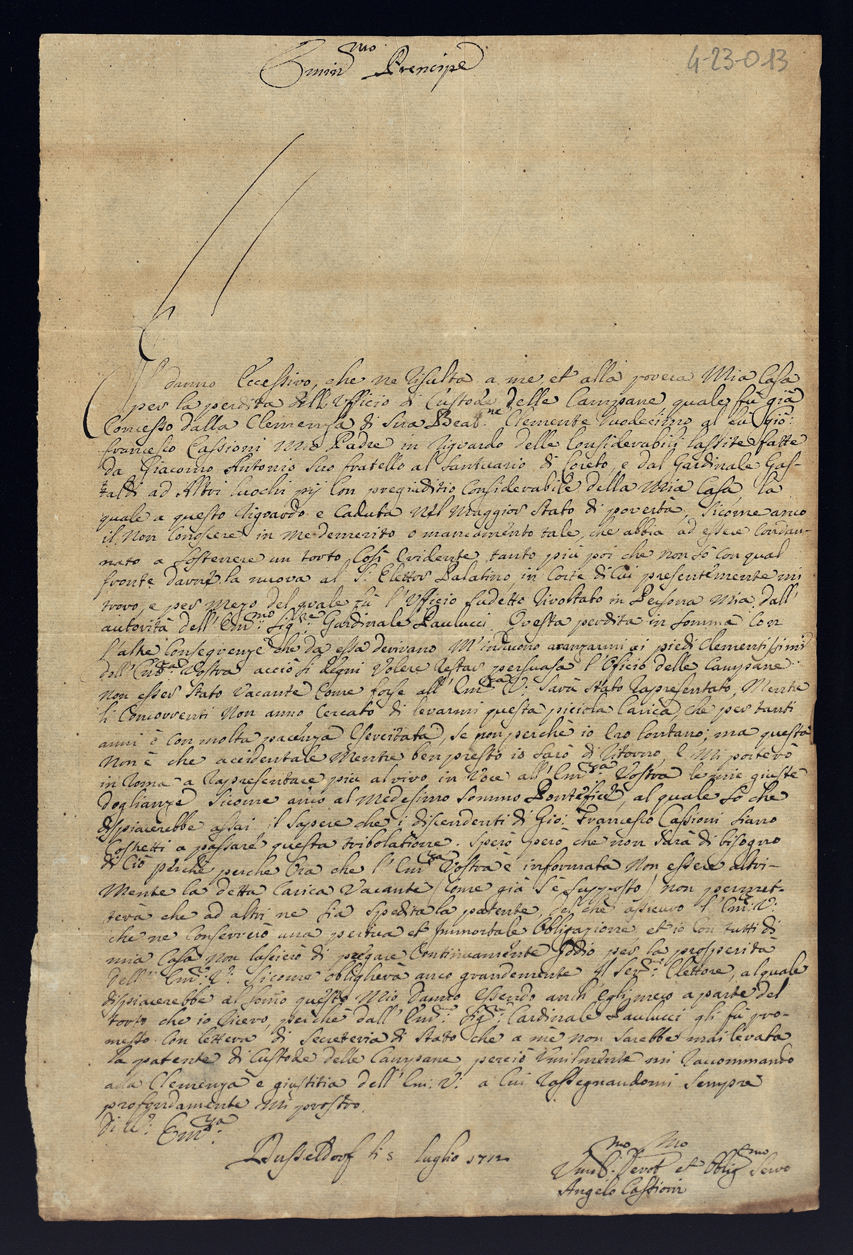 4-23-013
Emin.mo Prencipe
Il danno Eccessivo, che ne risulta a me, et alla povera Mia Casa
per la perdita dell'Ufficio di Custode delle Campane quale fù già
Concesso dalla Clemenza di Sua Beat.ne Clemente Duodecimo al fù Gio:
Francesco Cassioni Mio Padre in riguardo delle Considerabili lassite fatte
da Giacomo Antonio Suo fratello al Santuario di Loreto, e dal Cardinale Gas-
taldi ad Altri luochi pij Con pregiuditio Considerabile della Mia Casa, la
quale a questo riguardo è Caduta nel Maggior Stato di povertà, Sicome anco
il Non Conoscere in me demerito o mancamento tale, che abbia ad essere Condan-
nato a Sostenere un torto Così Evidente, tanto più poi che non sò con qual
fronte darne la nuova al S. Elettor Palatino, in Corte di Cui presentemente mi
trovo, e per Mezo del quale fù l'Ufficio sudetto rivoltato in Persona Mia dall'
autorità dell'Em.mo Sig.re Cardinale Paulucci. Questa perdita in Somma Con
l'altre Consegrenze che da essa derivano M'inducono avanzarmi ai piedi Clementissimi
dell'Em.za Vostra acciò si degni Volere restar persuasa l'Officio delle Campane
non esser Stato Vacante Come forse all'Em.za V: Sarà Stato rapresentato, Mentre
li Concorrenti Non anno Cercato di levarmi questa piciola Carica che per tanti
anni ò con molta pacienza Esercitata, Se non perchè io Ero lontano; ma questa
Non è che accidentale Mentre ben presto io Sarò di ritorno, e Mi porterò
in Roma a rapresentare più al vivo in Voce all'Em.za Vostra le mie giuste
doglianze Sicome anco al Medesimo Sommo Pontefice, al quale sò che
dispiacerebbe assai il Sapere che i discendenti di Gio: Francesco Cassioni siano
Costretti a passare questa tribolatione. Spero però che non Sarà di bisogno
di Ciò perchè Ora che l'Em.za Vostra è informata Non essere altri-
Mente la detta Carica Vacante (Come già s'è supposto) non permet-
terà che ad altri ne sia Spedita la patente, del che assicuro l'Em: V:
che ne Conserverò una perpetua et Immortale Obligazione et io Con tutti di
mia Casa Non lasciarò di pregare Continuamente Iddio per la prosperità
dell'Em: V: Sicome obligherà anco grandemente il Ser.mo Elettore, al quale
dispiacerebbe al Sommo questo Mio danno Essendo anch'Egli a parte del
torto che io ricevo, perchè dall'Em.mo Sig.r Cardinale Paulucci gli fù pro-
messo Con lettera di Secreteria di Stato che a me non Sarebbe mai levata
la patente di Custode delle Campane perciò Umilmente mi raccommando
alla Clemenza e giustitia dell'Em: V: a Cui rassegnandomi Sempre
profondamente mi prostro.
Di V.ra Em.za
Dusseldorf li 8 luglio 1712
Umil.mo Devot.mo et Oblig.mo Servo
Angelo Cassioni